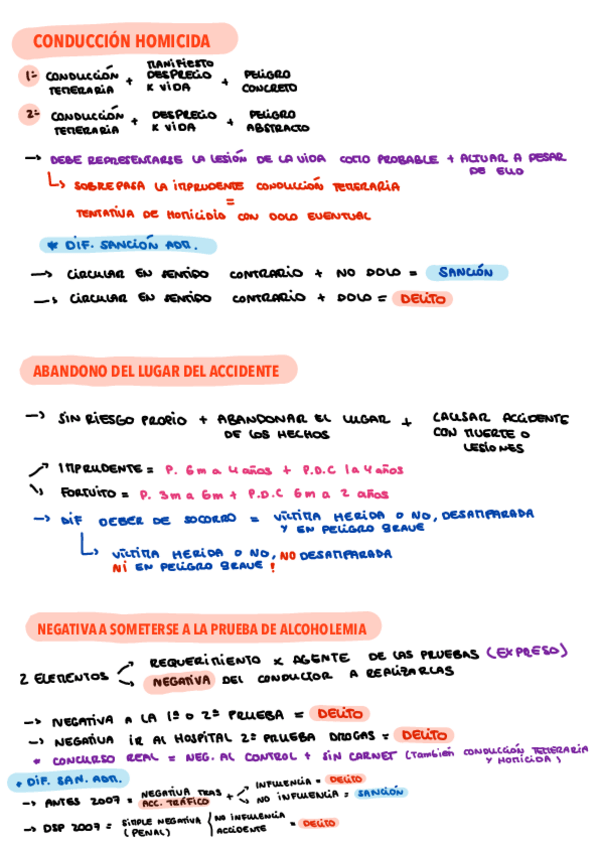 CONDUCCIÓN HOMICIDA
1º CONDUCCIÓN TEMERARIA + MANIFIESTO DESPRECIO X VIDA + PELIGRO CONCRETO
2º CONDUCCIÓN TEMERARIA + DESPRECIO X VIDA + PELIGRO ABSTRACTO
→ DEBE REPRESENTARSE LA LESIÓN DE LA VIDA COMO PROBABLE + ACTUAR A PESAR DE ELLO
↳ SOBREPASA LA IMPRUDENTE CONDUCCIÓN TEMERARIA
=
TENTATIVA DE HOMICIDIO CON DOLO EVENTUAL
* DIF. SANCIÓN ADM.
→ CIRCULAR EN SENTIDO CONTRARIO + NO DOLO = SANCIÓN
→ CIRCULAR EN SENTIDO CONTRARIO + DOLO = DELITO
ABANDONO DEL LUGAR DEL ACCIDENTE
→ SIN RIESGO PROPIO + ABANDONAR EL LUGAR DE LOS HECHOS + CAUSAR ACCIDENTE CON MUERTE O LESIONES
↗ IMPRUDENTE = P. 6m a 4 años + P.D.C 1 a 4 años
↘ FORTUITO = P. 3m a 6m + P.D.C 6m a 2 años
→ DIF DEBER DE SOCORRO = VÍCTIMA HERIDA O NO, DESAMPARADA Y EN PELIGRO GRAVE
↳ VÍCTIMA HERIDA O NO, NO DESAMPARADA NI EN PELIGRO GRAVE !
NEGATIVA A SOMETERSE A LA PRUEBA DE ALCOHOLEMIA
2 ELEMENTOS
REQUERIMIENTO X AGENTE DE LAS PRUEBAS (EXPRESO)
NEGATIVA DEL CONDUCTOR A REALIZARLAS
→ NEGATIVA A LA 1ª O 2ª PRUEBA = DELITO
→ NEGATIVA IR AL HOSPITAL 2ª PRUEBA DROGAS = DELITO
* CONCURSO REAL = NEG. AL CONTROL + SIN CARNET (También CONDUCCIÓN TEMERARIA Y HOMICIDA)
* DIF. SAN. ADM.
→ ANTES 2007 = NEGATIVA TRAS ACC. TRÁFICO +
INFLUENCIA = DELITO
NO INFLUENCIA = SANCIÓN
→ DSP 2007 = SIMPLE NEGATIVA (PENAL)
NO INFLUENCIA
ACCIDENTE
= DELITO